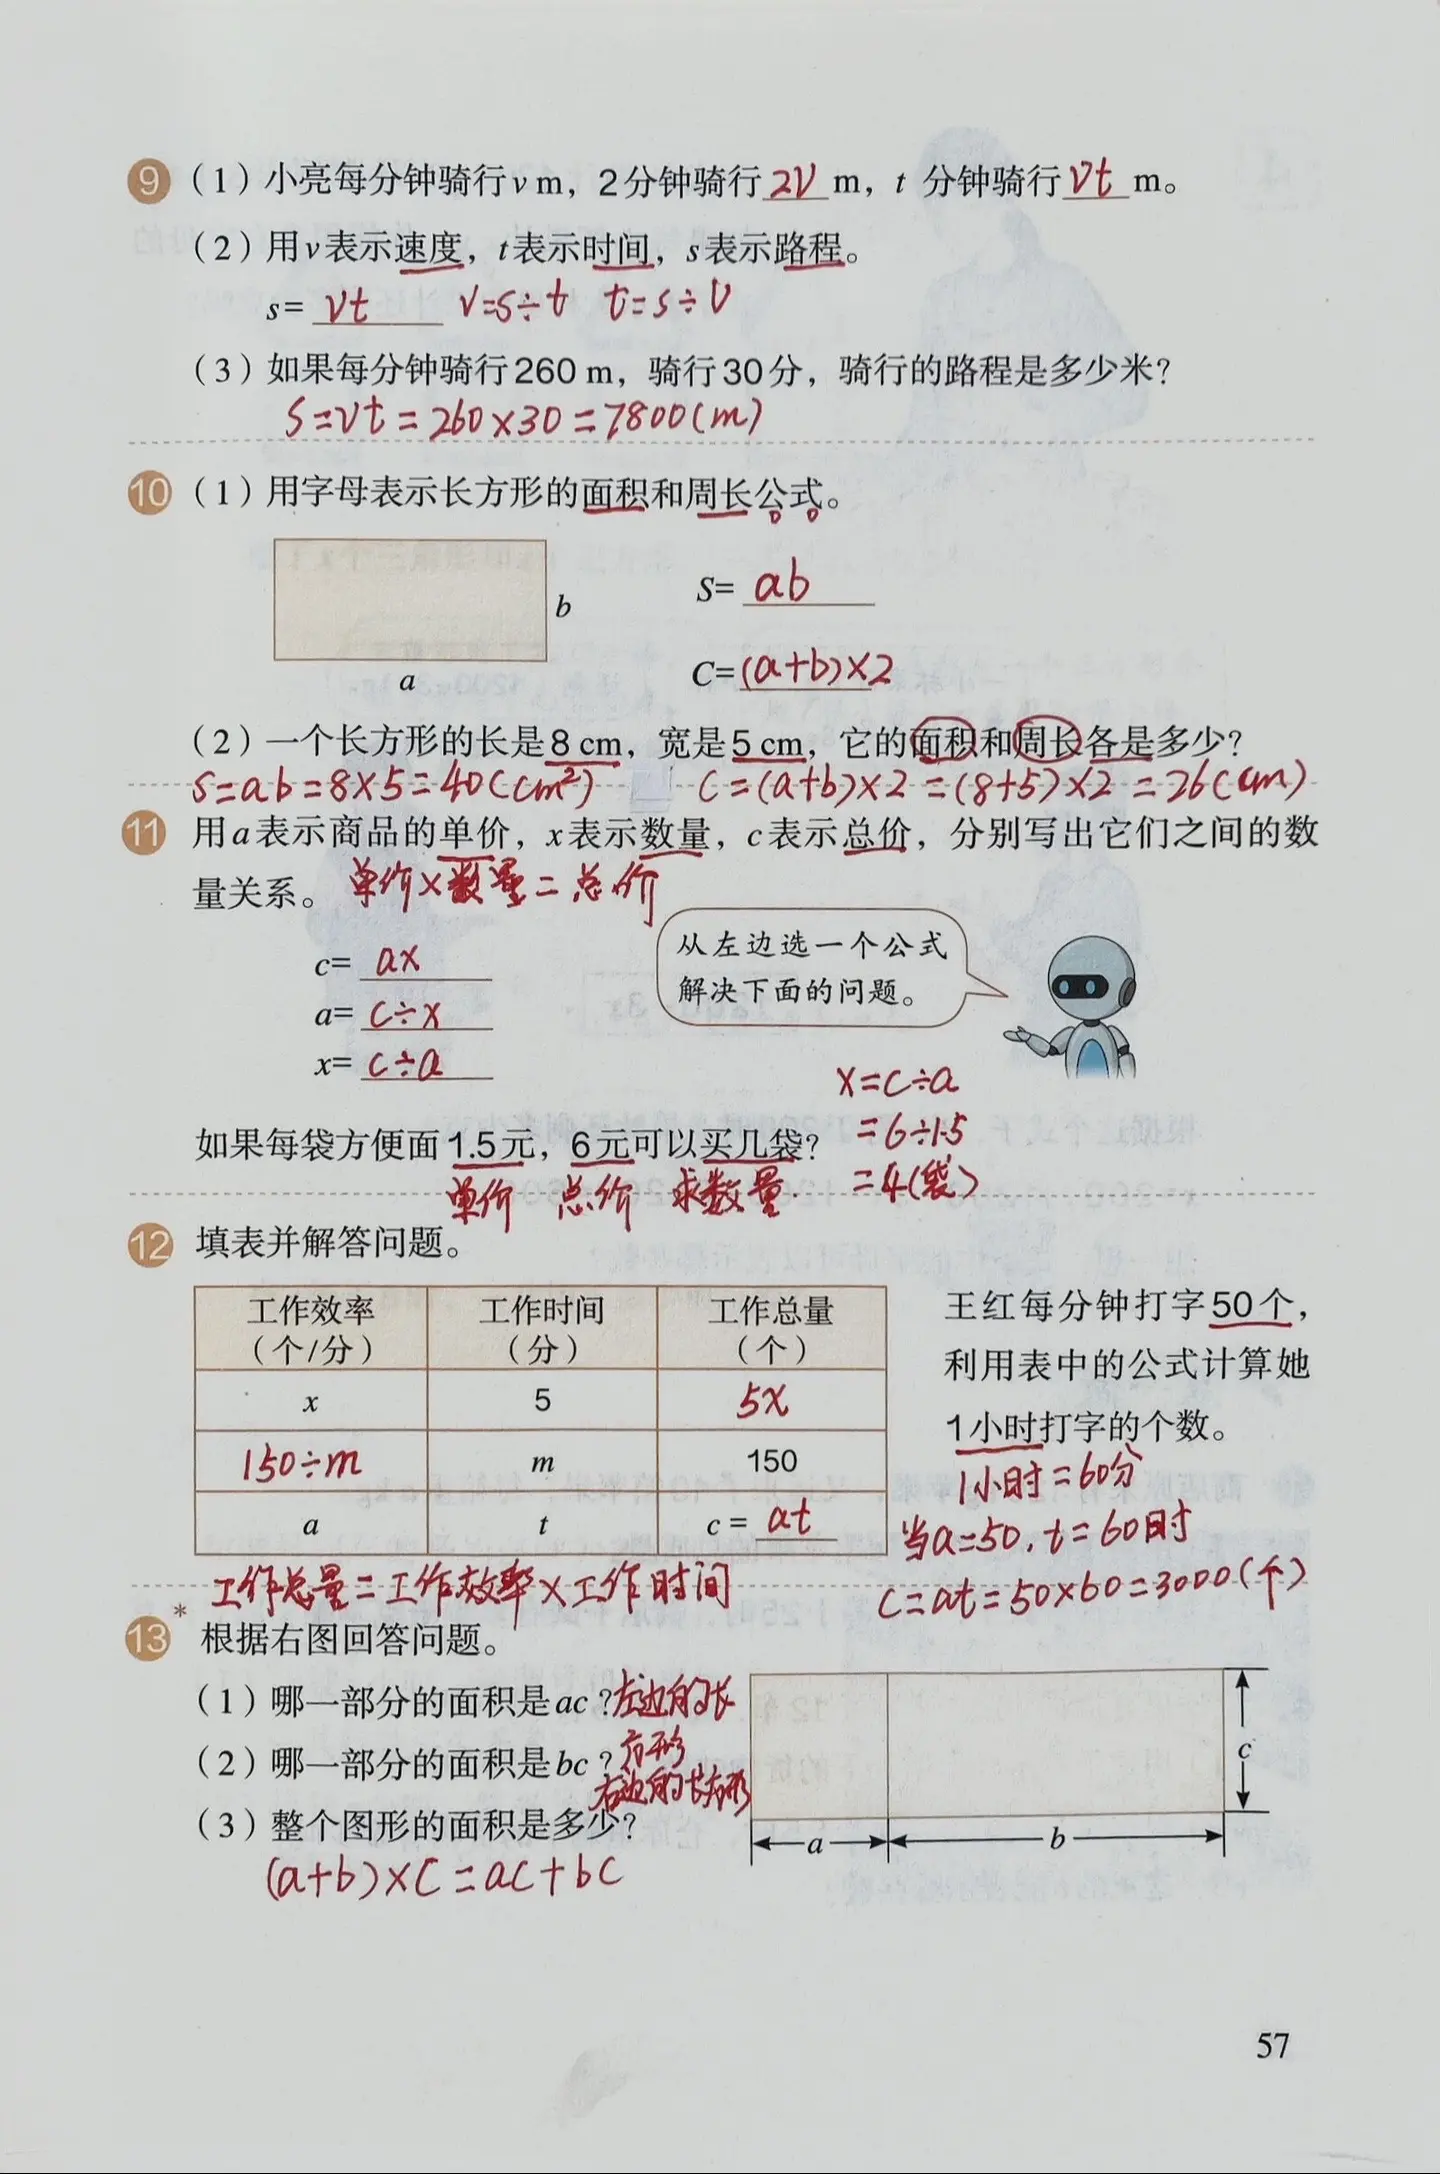 9 （1）小亮每分钟骑行v m，2分钟骑行 2v m，t 分钟骑行 vt m。
（2）用v表示速度，t表示时间，s表示路程。
s= vt v=s÷t t=s÷v
（3）如果每分钟骑行260 m，骑行30分，骑行的路程是多少米？
S=vt=260×30=7800(m)
10 （1）用字母表示长方形的面积和周长公式。
b
S= ab
a
C=(a+b)×2
（2）一个长方形的长是8 cm，宽是5 cm，它的面积和周长各是多少？
S=ab=8×5=40(cm²) C=(a+b)×2=(8+5)×2=26(cm)
11 用a表示商品的单价，x表示数量，c表示总价，分别写出它们之间的数
量关系。 单价×数量=总价
从左边选一个公式
解决下面的问题。
c= ax
a= c÷x
x= c÷a
x=c÷a
=6÷1.5
=4(袋)
如果每袋方便面1.5元，6元可以买几袋？
单价 总价 求数量.
12 填表并解答问题。
工作效率（个/分） 工作时间（分） 工作总量（个）
x 5 5x
150÷m m 150
a t c= at
工作总量=工作效率×工作时间
王红每分钟打字50个，
利用表中的公式计算她
1小时打字的个数。
1小时=60分
当a=50,t=60时
c=at=50×60=3000(个)
13* 根据右图回答问题。
（1）哪一部分的面积是ac？左边的长
方形
（2）哪一部分的面积是bc？
右边的长方形
（3）整个图形的面积是多少？
(a+b)×c=ac+bc
c
a b
57